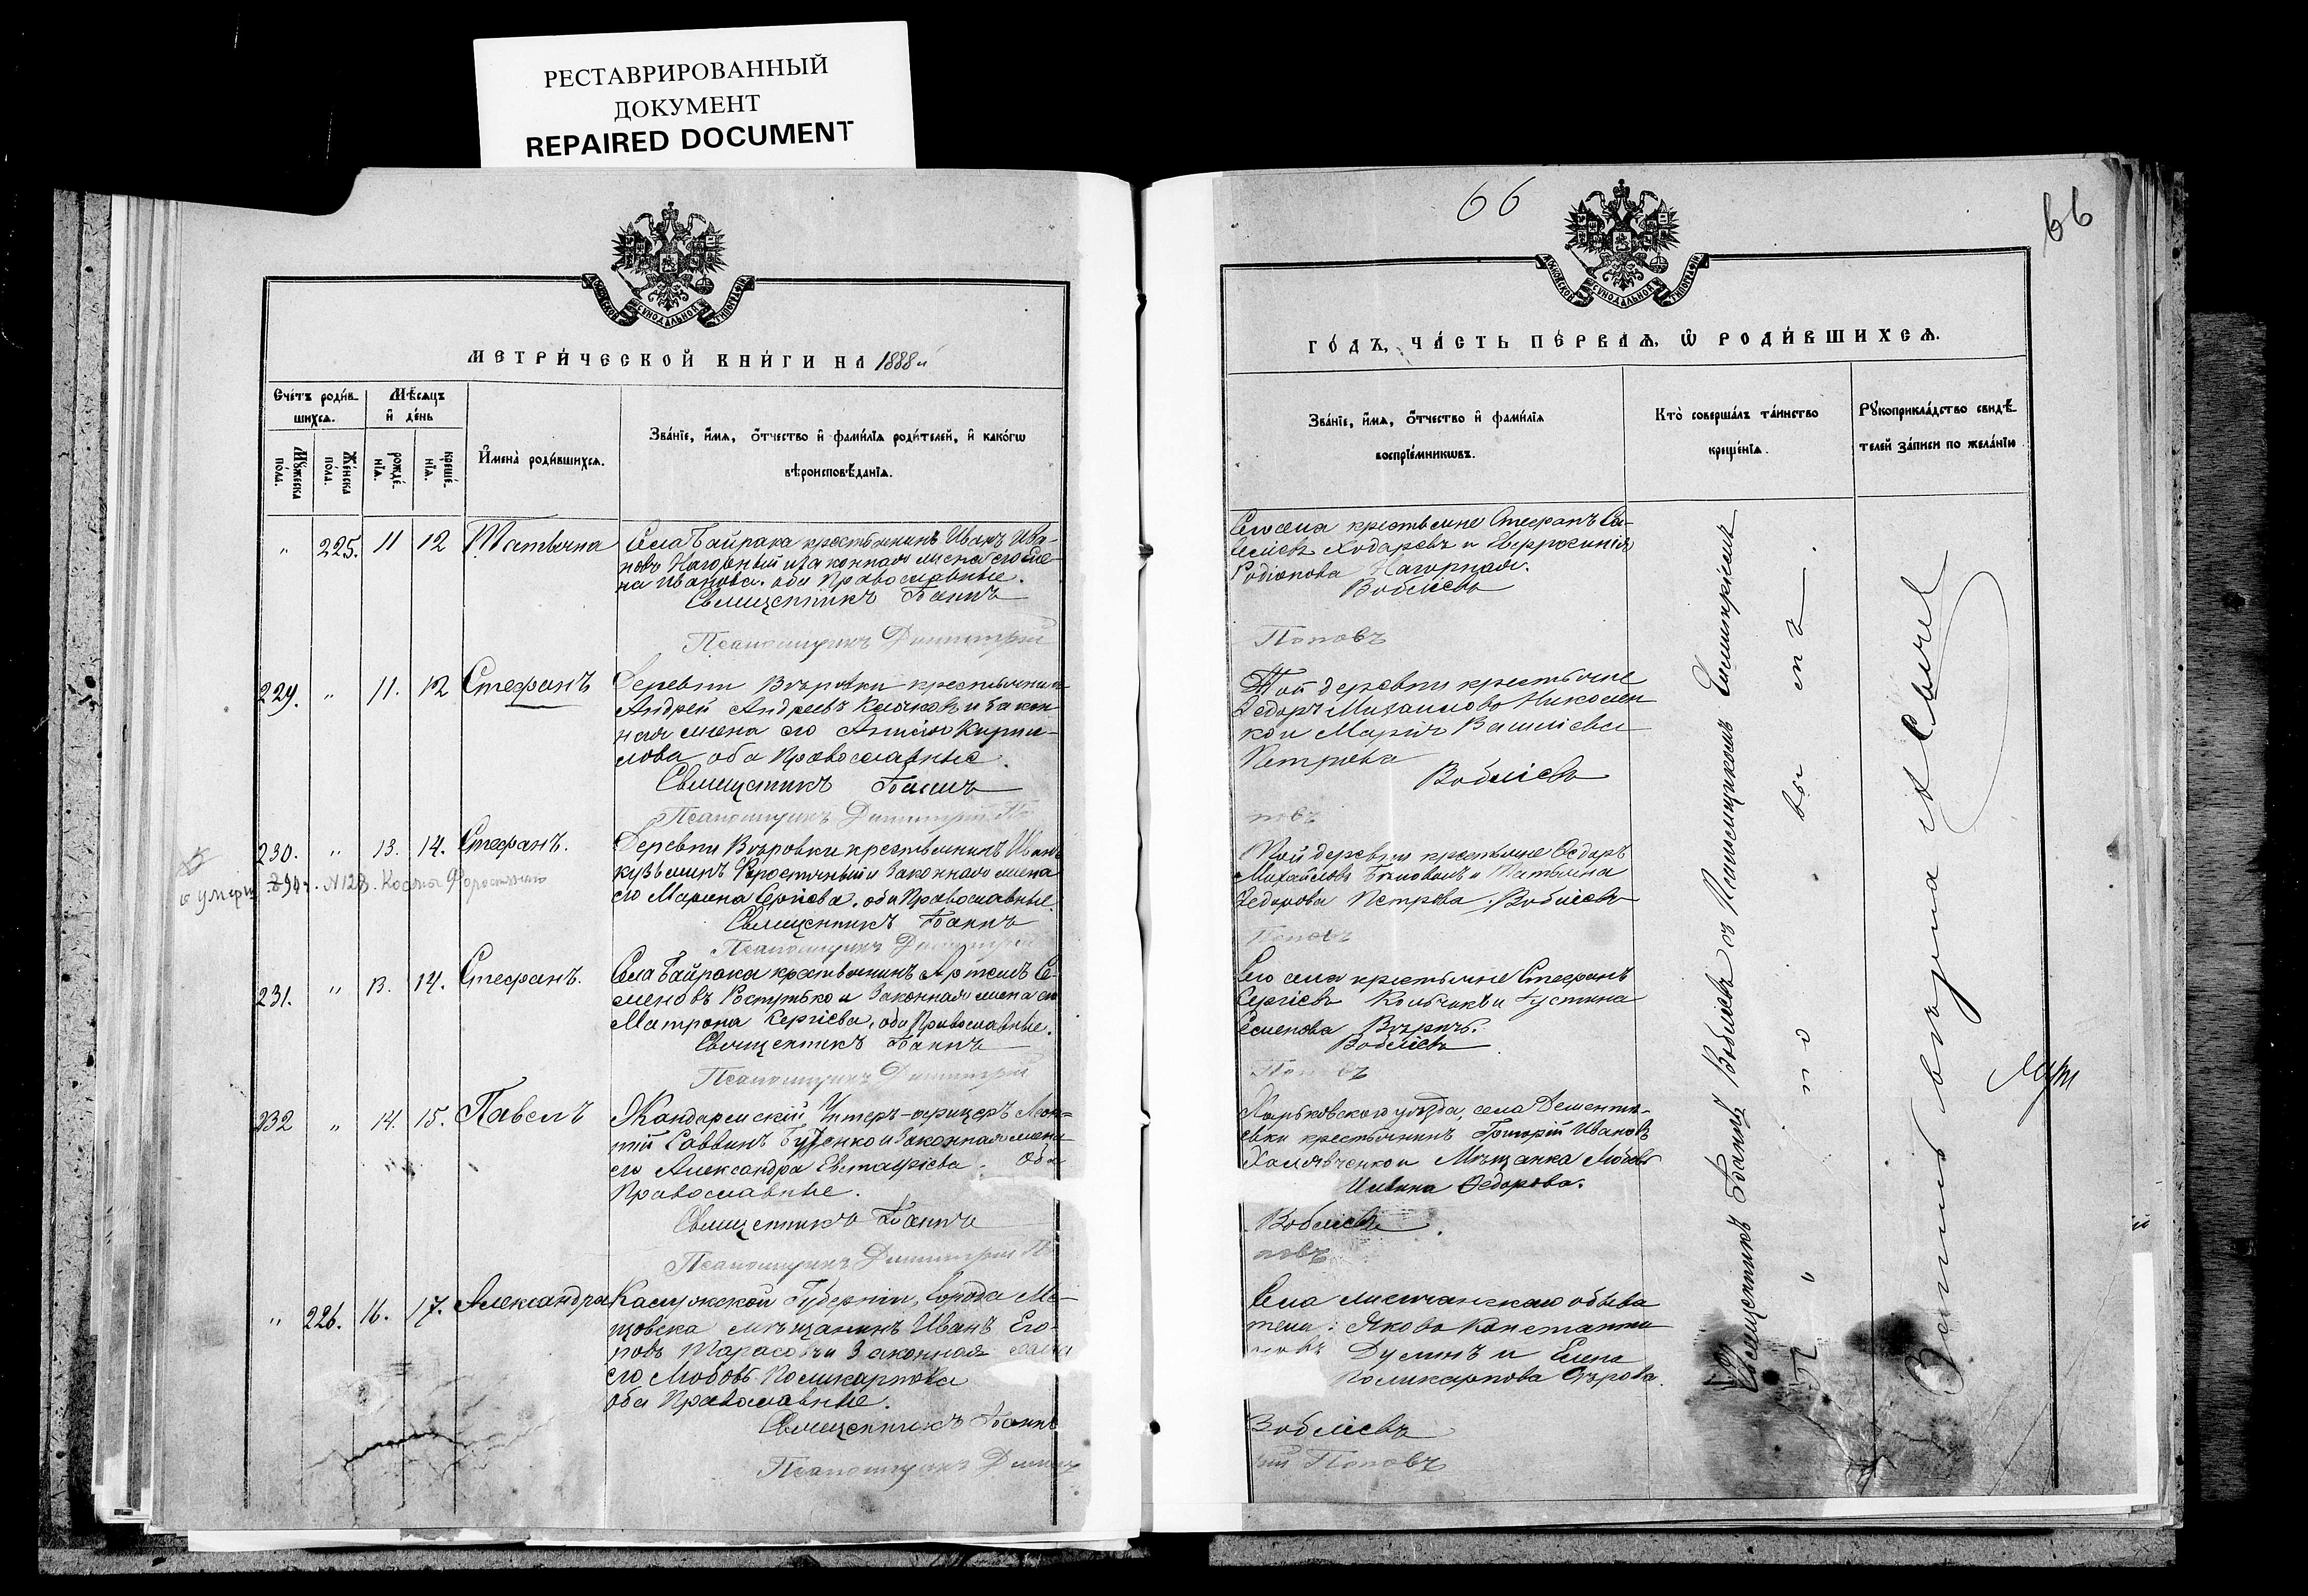 РЕСТАВРИРОВАННЫЙ
ДОКУМЕНТ
REPAIRED DOCUMENT
МЕТРИ́ЧЕСКОЙ КНИ́ГИ НА 1888й
Сче́тъ роди́в-
шихсѧ.
Мѣ́сѧцъ
и҆ де́нь
Мꙋ́жеска
по́ла.
Же́нска
по́ла.
рожде́-
нїѧ.
креще́-
нїѧ.
И҆мена̀ роди́вшихсѧ.
Зва́нїе, и҆́мѧ, ѻ҆́тчество и҆ фами́лїѧ роди́телей, и҆ како́гѡ
вѣроисповѣ́данїѧ.
" 225. 11 12 Татьяна
Села Байрака крестьянинъ Иванъ Ива-
новъ Нагорный и законная жена его Еле-
на Иванова. оба Православные.
Священникъ Іоаннъ
Псаломщикъ Димитрій
229. " 11. 12 Стефанъ
Деревни Вѣровки крестьянинъ
Андрей Андреевъ и закон
ная жена его Кирил-
лова оба Православные.
Священникъ Іоаннъ
Псаломщикъ Димитрій По
230. " 13. 14. Стефанъ.
Деревни Вѣровки крестьянинъ Иванъ
Кузьминъ Форостяный и Законная жена
его Марина Сергіева, оба Православные.
Священникъ Іоаннъ
Псаломщикъ Димитрій
231. " 13. 14. Стефанъ.
Села Байрака крестьянинъ Артемъ Се-
меновъ и Законная жена его
Матрона Сергіева, оба Православные.
Священникъ Іоаннъ
Псаломщикъ Димитрій
232 " 14. 15. Павелъ
Жандармскій Унтеръ-офицеръ Леон-
тій Саввинъ и Законная жена
его Александра Евстафіева. Оба
Православные.
Священникъ Іоаннъ
Псаломщикъ Димитрій По
" 226. 16. 17. Александра
Калужской Губерніи, города Ме-
щовска мѣщанинъ Иванъ Его-
ровъ Тарасовъ и Законная жена
его Любовь Поликарпова
оба Православные.
Священникъ Іоаннъ
Псаломщикъ Димит
66
66
ГО́ДЪ, ЧА́СТЬ ПЕ́РВАѦ, Ѡ҆ РОДИ́ВШИХСѦ.
Зва́нїе, и҆́мѧ, ѻ҆́тчество и҆ фами́лїѧ
воспрїе́мникѡвъ.
Кто̀ соверша́лъ та́инство
креще́нїѧ.
Рꙋкоприкла́дство свидѣ́-
телей за́писи по жела́нїю
Того села крестьяне Стефанъ Са-
веліевъ Ходаревъ и Евфросинія
Родіонова Нагорная.
Воблиевъ
Поповъ
Той деревни крестьяне
Федоръ Михаиловъ Николаен
ко и Марія Василіева
Петрова
Воблиевъ
повъ
Той деревни крестьяне Федоръ
Михайловъ и Татьяна
Федорова Петрова. Воблиевъ
Поповъ
Того села крестьяне Стефанъ
Сергіевъ и Густина
Семенова
Воблиевъ
Поповъ
Харьковского уѣзда, села Дементь-
евки крестьянинъ Григорій Ивановъ
и Мѣщанка Любовь
Федорова.
Воблиевъ
повъ
Села обыва
тели: Яковъ Константи
новъ и Елена
Поликарпова
Воблиевъ
ій Поповъ
Священникъ Іоаннъ Воблиевъ съ Псаломщикомъ